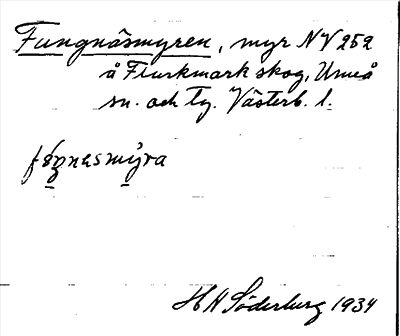 Fungnäsmyren, myr NV 252
å Flurkmark skog, Umeå
sn. och Tg. Västerb. l.
H H Söderberg 1934